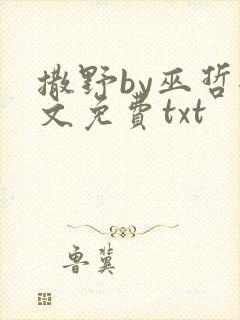 撒野by巫哲
文免费txt
鲁冀